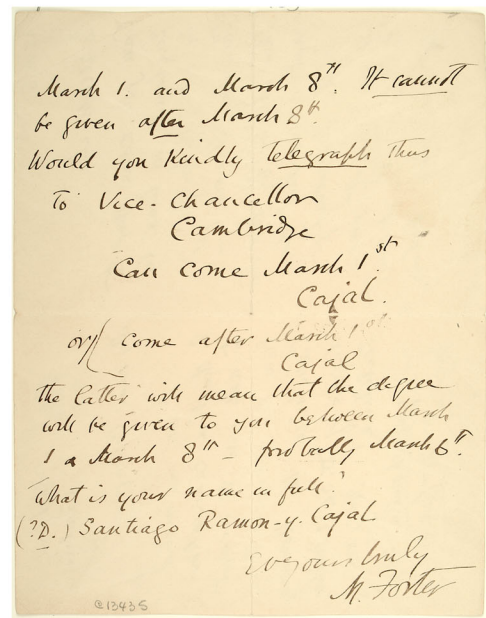 March 1. and March 8th. It cannot
be given after March 8th.
Would you kindly telegraph thus
To Vice-Chancellor
Cambridge
"Can come March 1st.
Cajal.
or come after March 1st.
Cajal
the latter will mean that the degree
will be given to you between March
1 & March 8th - probably March 6th.
What is your name in full?
(?D.) Santiago Ramon-y-Cajal
yours truly
M. Foster
@13435